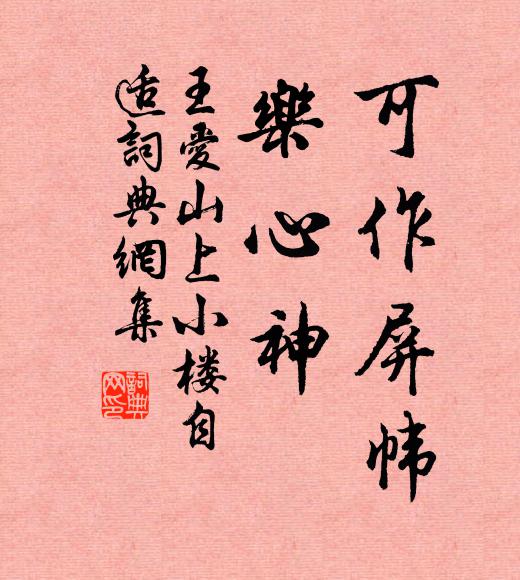 可作屏帏
樂心神
王愛山上小楼自
适詞典網集
詞典网印